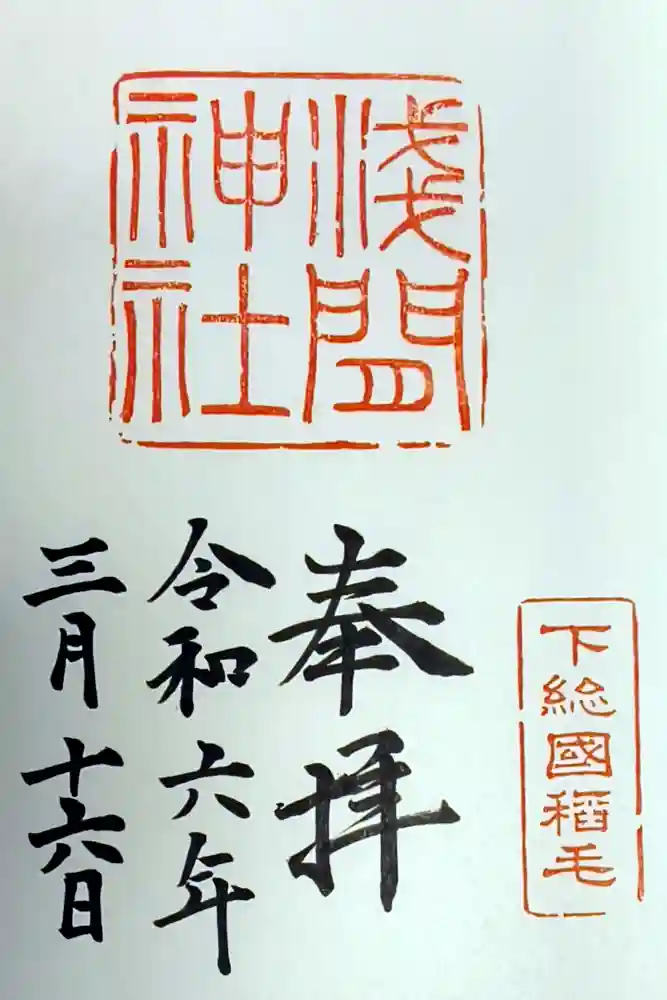 淺間
神社
下総國稲毛
奉拝
令和六年
三月十六日